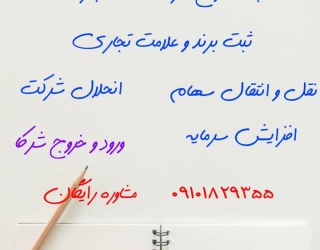 ثبت برند و علامت تجاری
نقل و انتقال سهام    انحلال شرکت
افزایش سرمایه    ورود و خروج شرکا
۰۹۱۰۱۸۲۹۳۵۵    مشاوره رایگان